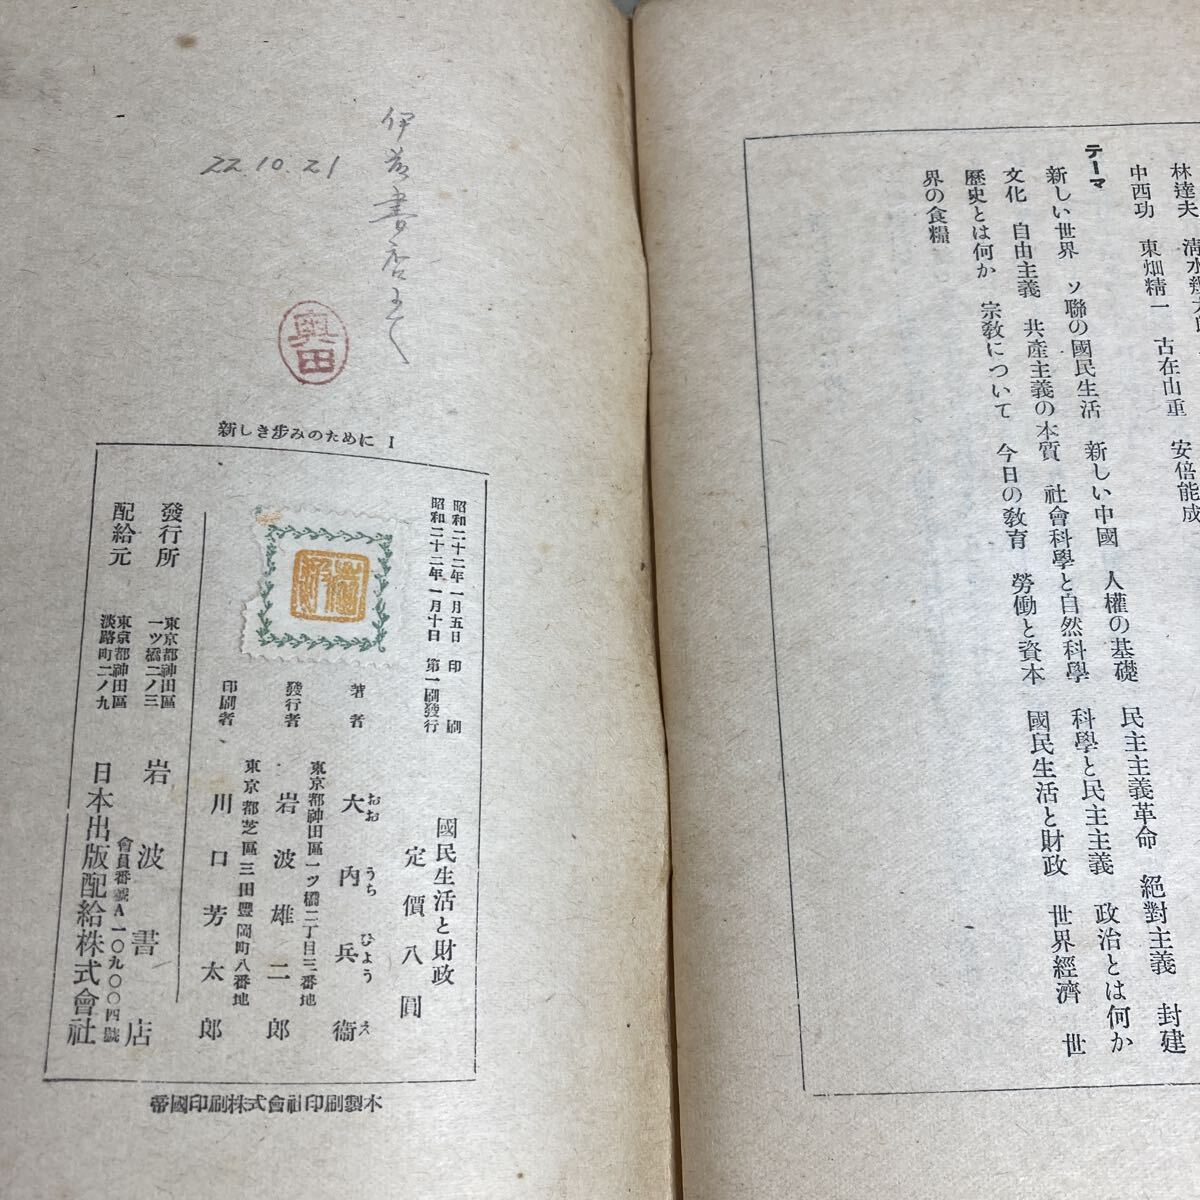 林達夫 清水幾太郎
中西功 東畑精一 古在由重 安倍能成
テーマ
新しい世界 ソ聯の國民生活 新しい中國 人權の基礎 民主主義革命 絕對主義 封建
文化 自由主義 共產主義の本質 社會科學と自然科學 科學と民主主義 政治とは何か
歷史とは何か 宗敎について 今日の敎育 勞働と資本 國民生活と財政 世界經濟 世
界の食糧
伊藤書店
22.10.21
奥田
新しき步みのために I
國民生活と財政
定價八圓
昭和二十二年一月五日 印刷
昭和二十二年一月十日 第一刷發行
著者 大內兵衞
おお うち ひょう え
東京都神田區一ツ橋二丁目三番地
發行者 岩波雄二郎
東京都芝區三田豐岡町八番地
印刷者 川口芳太郎
發行所 東京都神田區一ツ橋二ノ三 岩波書店
會員番號A一〇九〇〇四號
配給元 東京都神田區淡路町二ノ九 日本出版配給株式會社
帝國印刷株式會社印刷製本